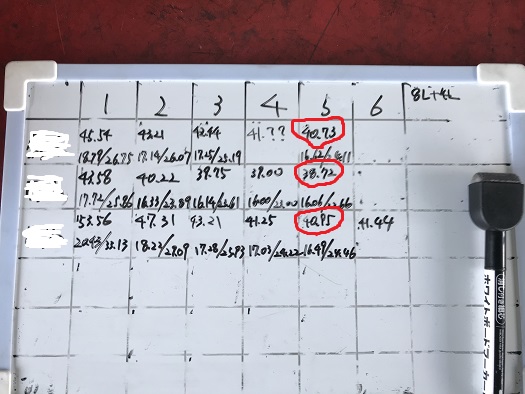 1 2 3 4 5 6 8L+4L
45.54 43.21 42.44 41.77 40.73
18.79/26.75 17.14/26.07 17.25/25.19 16.62/24.11
43.58 40.22 39.75 39.00 38.72
17.72/25.86 16.33/23.89 16.14/23.61 16.00/23.00 16.06/22.66
53.56 47.31 43.21 41.25 40.95 41.44
20.43/33.13 18.22/29.09 17.38/25.83 17.03/24.22 16.49/24.46
消し付き磁石
ホワイトボードマーカー